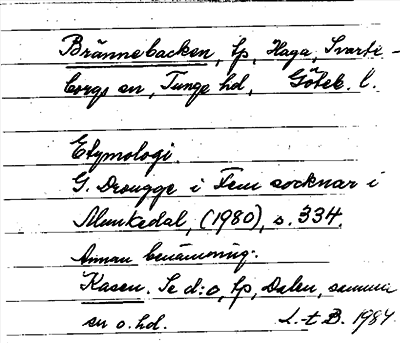 Brännebacken, lp, Haga, Svarte-
borgs sn, Tunge hd, Göteb. l.
Etymologi.
G. Drougge i Fem socknar i
Munkedal, (1980), s. 334.
Annan benämning:
Kasen. Se d:o, lp, Dalen, samma
sn o. hd. L-t B. 1984